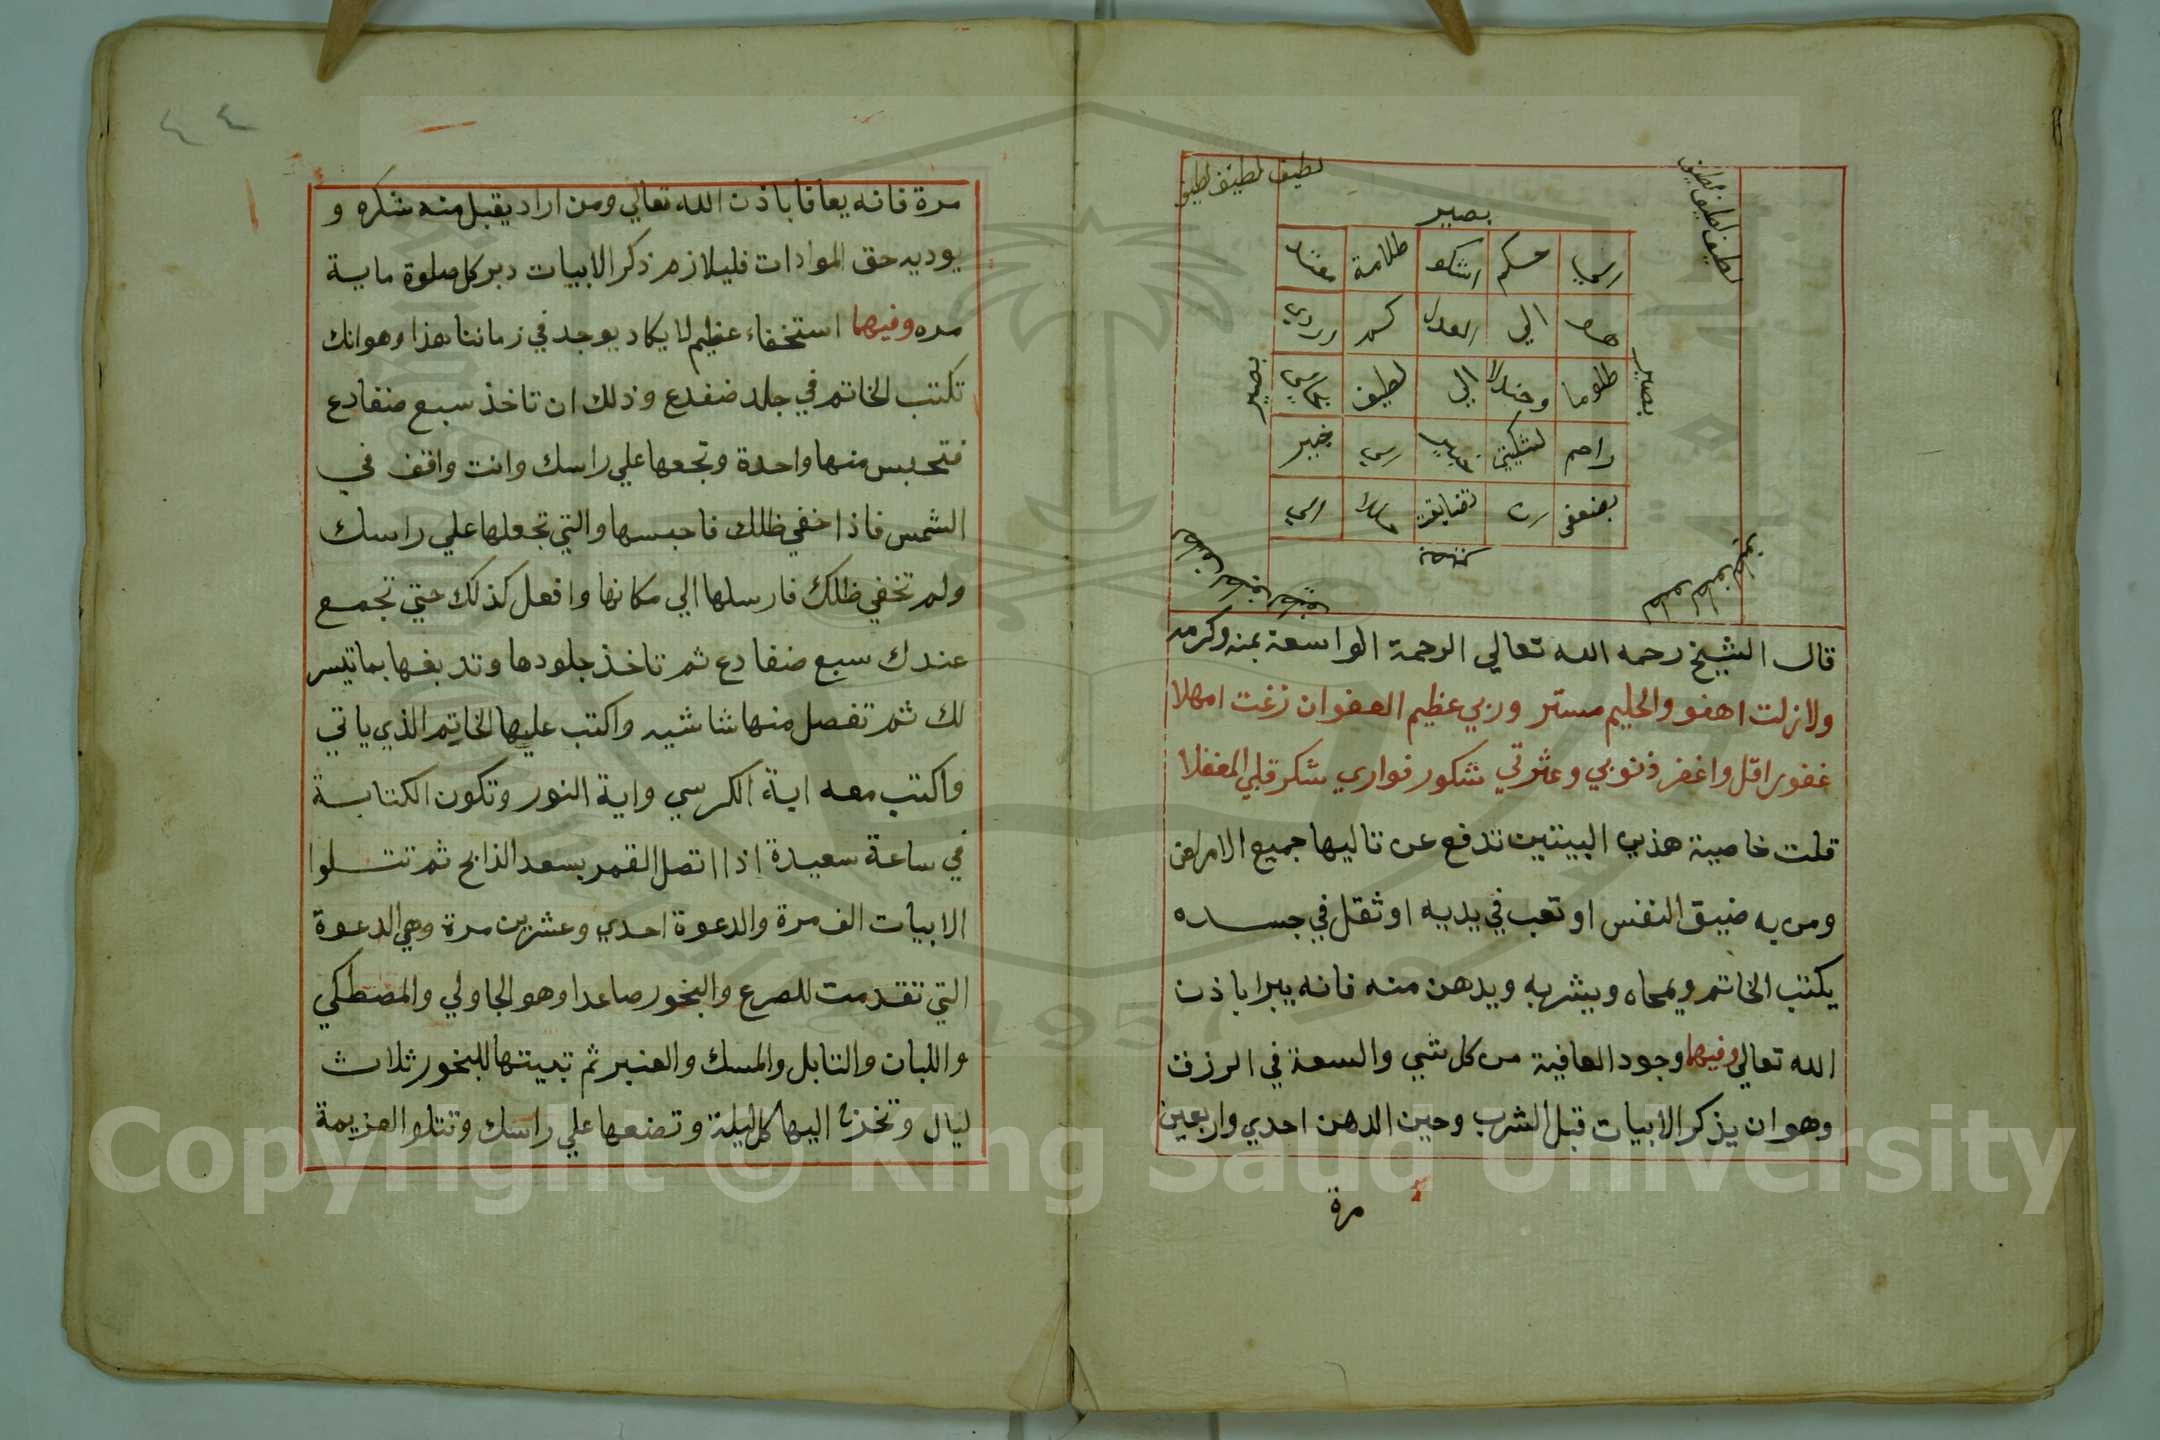 لطيف لطيف لطيف
لطيف لطيف لطيف
بصير
حكم اشكو ظلامة
الي العدل
بصير
بصير
طلوما الي لطيف
راحم خبير
قال الشيخ رحمه الله تعالي الرحمة الواسعة بمنه وكرمه
ولازلت اهفو والحليم مستر وربي عظيم العفو ان زغت امهلا
غفور اقل واغفر ذنوبي وعثرتي شكور فواري شكر قلبي المغفلا
قلت خاصية هذين البيتين تدفع عن تاليها جميع الامراض
ومن به ضيق النفس او تعب في يديه او ثقل في جسده
يكتب الخاتم ويمحاه ويشربه ويدهن منه فانه يبرا باذن
الله تعالي وفيها وجود العافية من كل شي والسعة في الرزق
وهو ان يذكر الابيات قبل الشرب وحين الدهن احدي واربعين
مرة
٤٤
مرة فانه يعافا باذن الله تعالي ومن اراد يقبل منه شكره و
يوديه حق الموادات فليلازم ذكر الابيات دبر كل صلوة ماية
مره وفيها استخفاء عظيم لا يكاد يوجد في زماننا هذا وهو انك
تكتب الخاتم في جلد ضفدع وذلك ان تاخذ سبع ضفادع
فتحبس منها واحدة وتجعها علي راسك وانت واقف في
الشمس فاذا خفي ظلك فاحبسها والتي تجعلها علي راسك
ولم تخفي ظلك فارسلها الي مكانها وافعل كذلك حتي تجمع
عندك سبع ضفادع ثم تاخذ جلودها وتدبغها بما تيسر
لك ثم تفصل منها شاشيه واكتب عليها الخاتم الذي ياتي
واكتب معه اية الكرسي واية النور وتكون الكتابة
في ساعة سعيدة اذا اتصل القمر بسعد الذابح ثم تتلوا
الابيات الف مرة والدعوة احدي وعشرين مرة وهي الدعوة
التي تقدمت للصرع والبخور صاعدا وهو الجاولي والمصطكي
واللبان والتابل والمسك والعنبر ثم تبيتها للبخور ثلاث
ليال وتخذها اليها كل ليلة وتضعها علي راسك وتتلو العزيمة
Copyright © King Saud University
1957